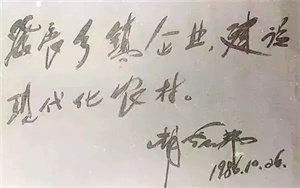 發展乡镇企业，建设
现代化农村。
1986.10.26.